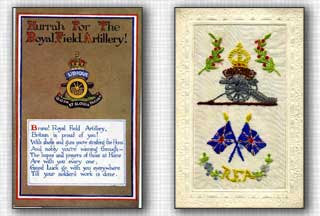 Hurrah For The
Royal Field Artillery!
UBIQUE
Bravo! Royal Field Artillery,
Britain is proud of you!
With shells and guns you're strafing the Huns
And nobly you're winning through—
The hopes and prayers of those at Home
Are with you every one,
Good Luck go with you everywhere
Till your soldier's work is done.
R.F.A.